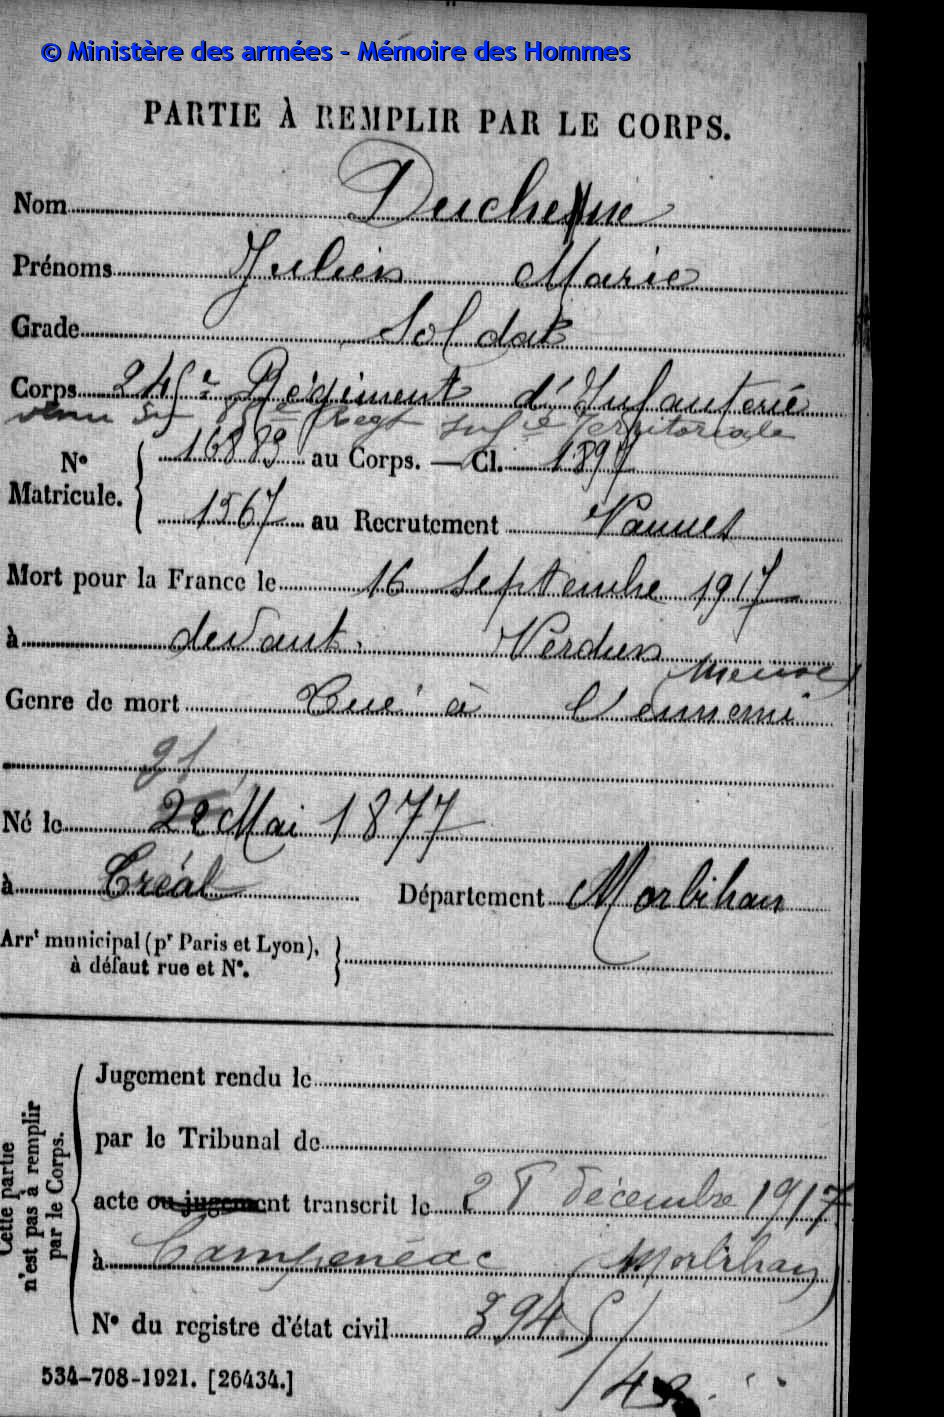 © Ministère des armées - Mémoire des Hommes
PARTIE À REMPLIR PAR LE CORPS.
Nom Duchene
Prénoms Julien Marie
Grade Soldat
Corps 245e Régiment d'Infanterie
venu du 85e Regt Infie Territoriale
N° Matricule. 16889 au Corps. — Cl. 1897
1567 au Recrutement Vannes
Mort pour la France le 16 Septembre 1917
à devant Verdun
(Meuse)
Genre de mort Tué à l'ennemi
21
Né le 22 Mai 1877
à Créal Département Morbihan
Arrt municipal (pr Paris et Lyon),
à défaut rue et N°.
Cette partie n'est pas à remplir par le Corps.
Jugement rendu le
par le Tribunal de
acte ou jugement transcrit le 28 décembre 1917
à Campénéac (Morbihan)
N° du registre d'état civil
534-708-1921. [26434.]